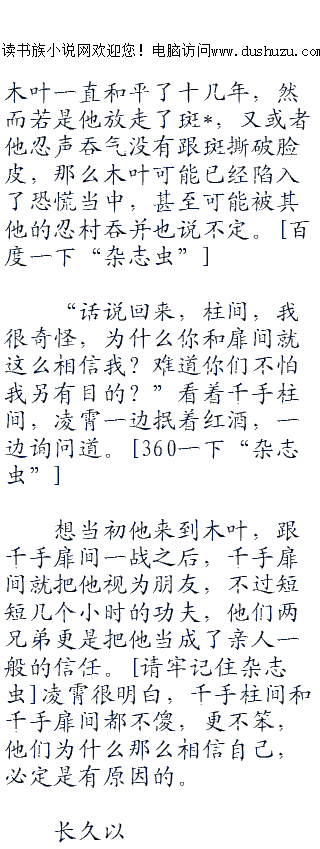 读书族小说网欢迎您！电脑访问www.dushuzu.com
木叶一直和平了十几年，然
而若是他放走了斑*，又或者
他忍声吞气没有跟斑撕破脸
皮，那么木叶可能已经陷入
了恐慌当中，甚至可能被其
他的忍村吞并也说不定。[百
度一下“杂志虫”]
“话说回来，柱间，我
很奇怪，为什么你和扉间就
这么相信我？难道你们不怕
我另有目的？”看着千手柱
间，凌霄一边抿着红酒，一
边询问道。[360一下“杂志
虫”]
想当初他来到木叶，跟
千手扉间一战之后，千手扉
间就把他视为朋友，不过短
短几个小时的功夫，他们两
兄弟更是把他当成了亲人一
般的信任。[请牢记住杂志
虫]凌霄很明白，千手柱间和
千手扉间都不傻，更不笨，
他们为什么那么相信自己，
必定是有原因的。
长久以